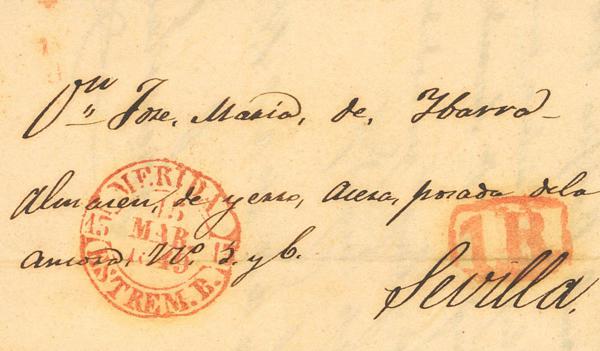 Dn Jose, Maria, de, Ybarra
Almacen, de yesso, Acera, posada dela
Nº 5. y 6.
Sevilla.
MERIDA
15
MAR
1845
ESTREM. B.
15
15
1R